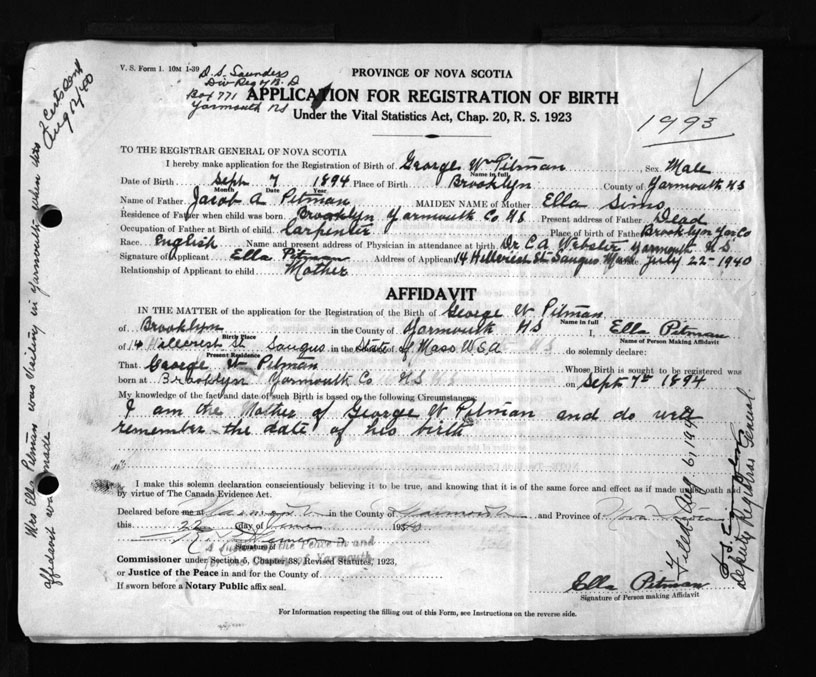 V. S. Form 1. 10M 1-39
D. S. Saunders
Div Reg of B. D
Box 771
Yarmouth NS
2 Certs sent
Aug 12/40
PROVINCE OF NOVA SCOTIA
APPLICATION FOR REGISTRATION OF BIRTH
Under the Vital Statistics Act, Chap. 20, R. S. 1923
1993
TO THE REGISTRAR GENERAL OF NOVA SCOTIA
I hereby make application for the Registration of Birth of George Wm Pitman Sex Male
Name in full
Date of Birth Sept 7 1894 Place of Birth Brooklyn County of Yarmouth NS
Month Date Year
Name of Father Jacob A Pitman MAIDEN NAME of Mother Ella Sims
Residence of Father when child was born Brooklyn Yarmouth Co NS Present address of Father Dead
Occupation of Father at Birth of child Carpenter Place of birth of Father Brooklyn Yar Co
Race English Name and present address of Physician in attendance at birth Dr C A Webster Yarmouth NS
Signature of Applicant Ella Pitman Address of Applicant 14 Hillcrest St Saugus Mass July 22-1940
Relationship of Applicant to child Mother
AFFIDAVIT
IN THE MATTER of the application for the Registration of the Birth of George W Pitman
Name in full
of Brooklyn in the County of Yarmouth NS I, Ella Pitman
Birth Place Name of Person Making Affidavit
of 14 Hillcrest St Saugus in the State of Mass USA do solemnly declare:
Present Residence
That George W Pitman Whose Birth is sought to be registered was
born at Brooklyn Yarmouth Co NS on Sept 7th 1894
My knowledge of the fact and date of such Birth is based on the following Circumstances:
I am the Mother of George W Pitman and do well
remember the date of his birth
I make this solemn declaration conscientiously believing it to be true, and knowing that it is of the same force and effect as if made under oath and
by virtue of The Canada Evidence Act.
Declared before me at Yarmouth in the County of Yarmouth and Province of Nova Scotia
this 22 day of 19
Signature of
A Justice of the Peace in and
Yarmouth
Commissioner under Section 5, Chapter 38, Revised Statutes, 1923,
or Justice of the Peace in and for the County of
If sworn before a Notary Public affix seal.
Ella Pitman
Signature of Person making Affidavit
For Information respecting the filling out of this Form, see Instructions on the reverse side.
Mrs Ella Pitman was visiting in Yarmouth when this
affidavit was made
Filed Aug 6, 1940
Deputy Registrar General